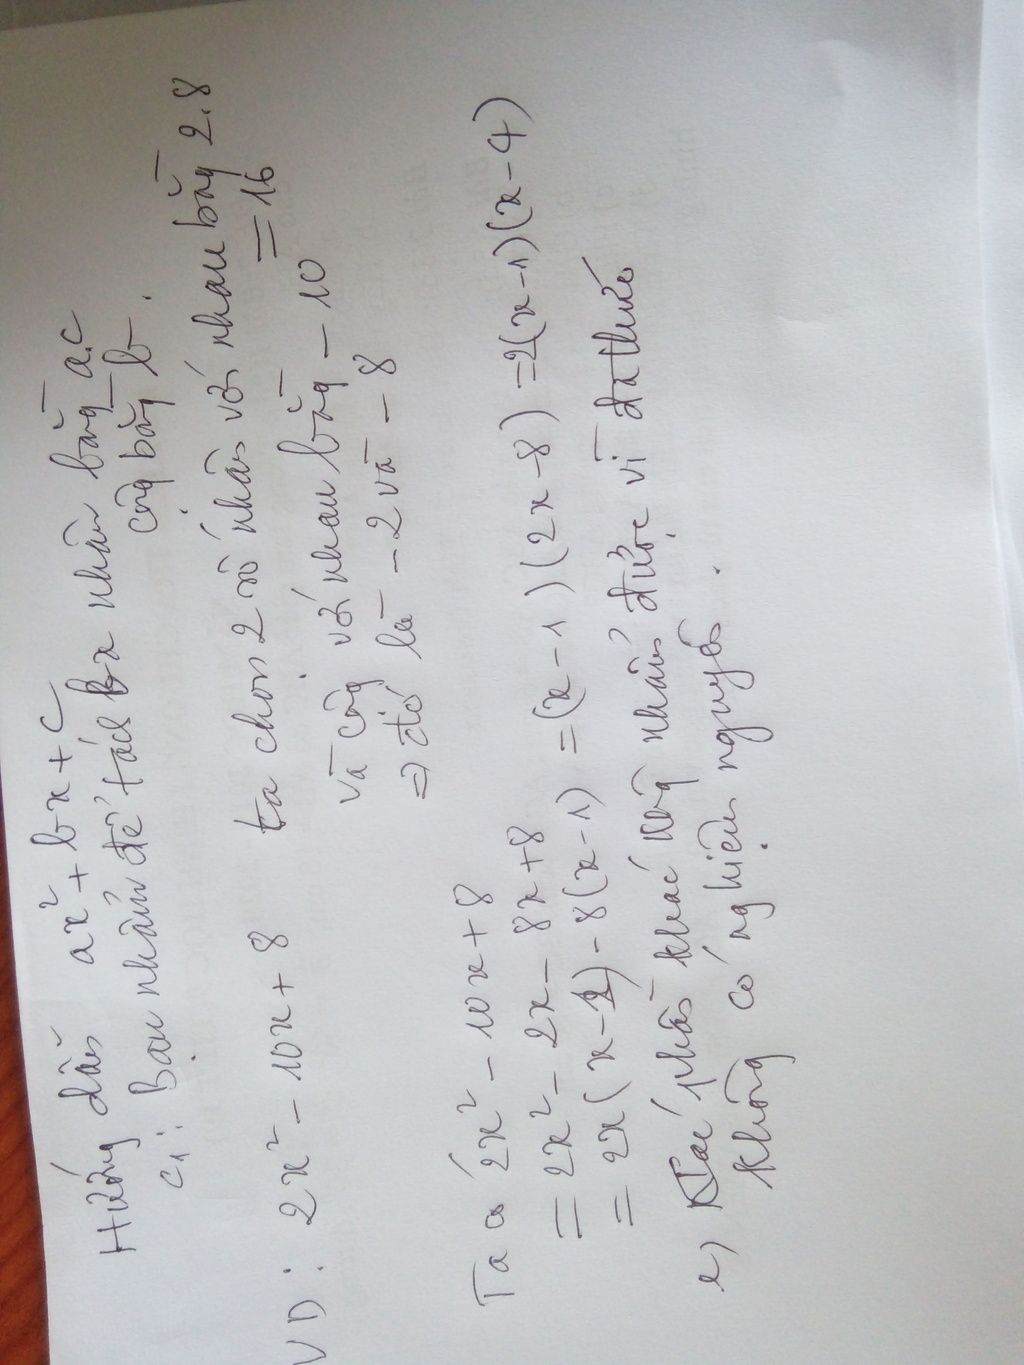 Hướng dẫn ax² + bx + c
C₁: Bạn nhẩm để tách bx nhân bằng a.c
cộng bằng b.
VD: 2x² - 10x + 8 ta chọn 2 số nhân với nhau bằng 2.8
= 16
và cộng với nhau bằng - 10
=> đó là - 2 và - 8
Ta có 2x² - 10x + 8
= 2x² - 2x - 8x + 8
= 2x(x - 1) - 8(x - 1) = (x - 1)(2x - 8) = 2(x - 1)(x - 4)
e) Các phần khác nhẩm được vì đa thức
không có nghiệm nguyên.